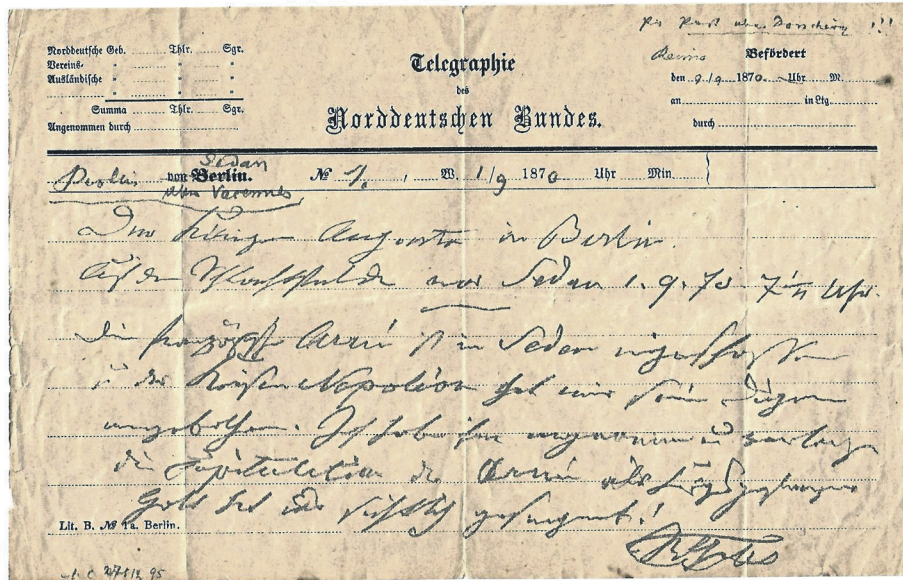 per Post über Donchery !!!
Norddeutsche Geb. Thlr. Sgr.
Vereins- " " "
Ausländische " " "
Summa Thlr. Sgr.
Angenommen durch
Telegraphie
des
Norddeutschen Bundes.
Reims Befördert
den 2/9 1870 Uhr M.
an in Ltg.
durch
Berlin von Berlin. Sedan
über Varennes
№ 1. W. 1/9 1870 Uhr Min.
Der Königin Augusta in Berlin.
Auf dem Schlachtfelde vor Sedan 1. 9. 70 7 Uhr.
Die französische Armee ist in Sedan eingeschlossen
u der Kaiser Napoléon hat mir seinen Degen
angebothen. Ich habe ihn angenommen u verlange
die Capitulation der Armee als Kriegsgefangen
Gott hat uns sichtlich gesegnet!
Lit. B. № 1a. Berlin.